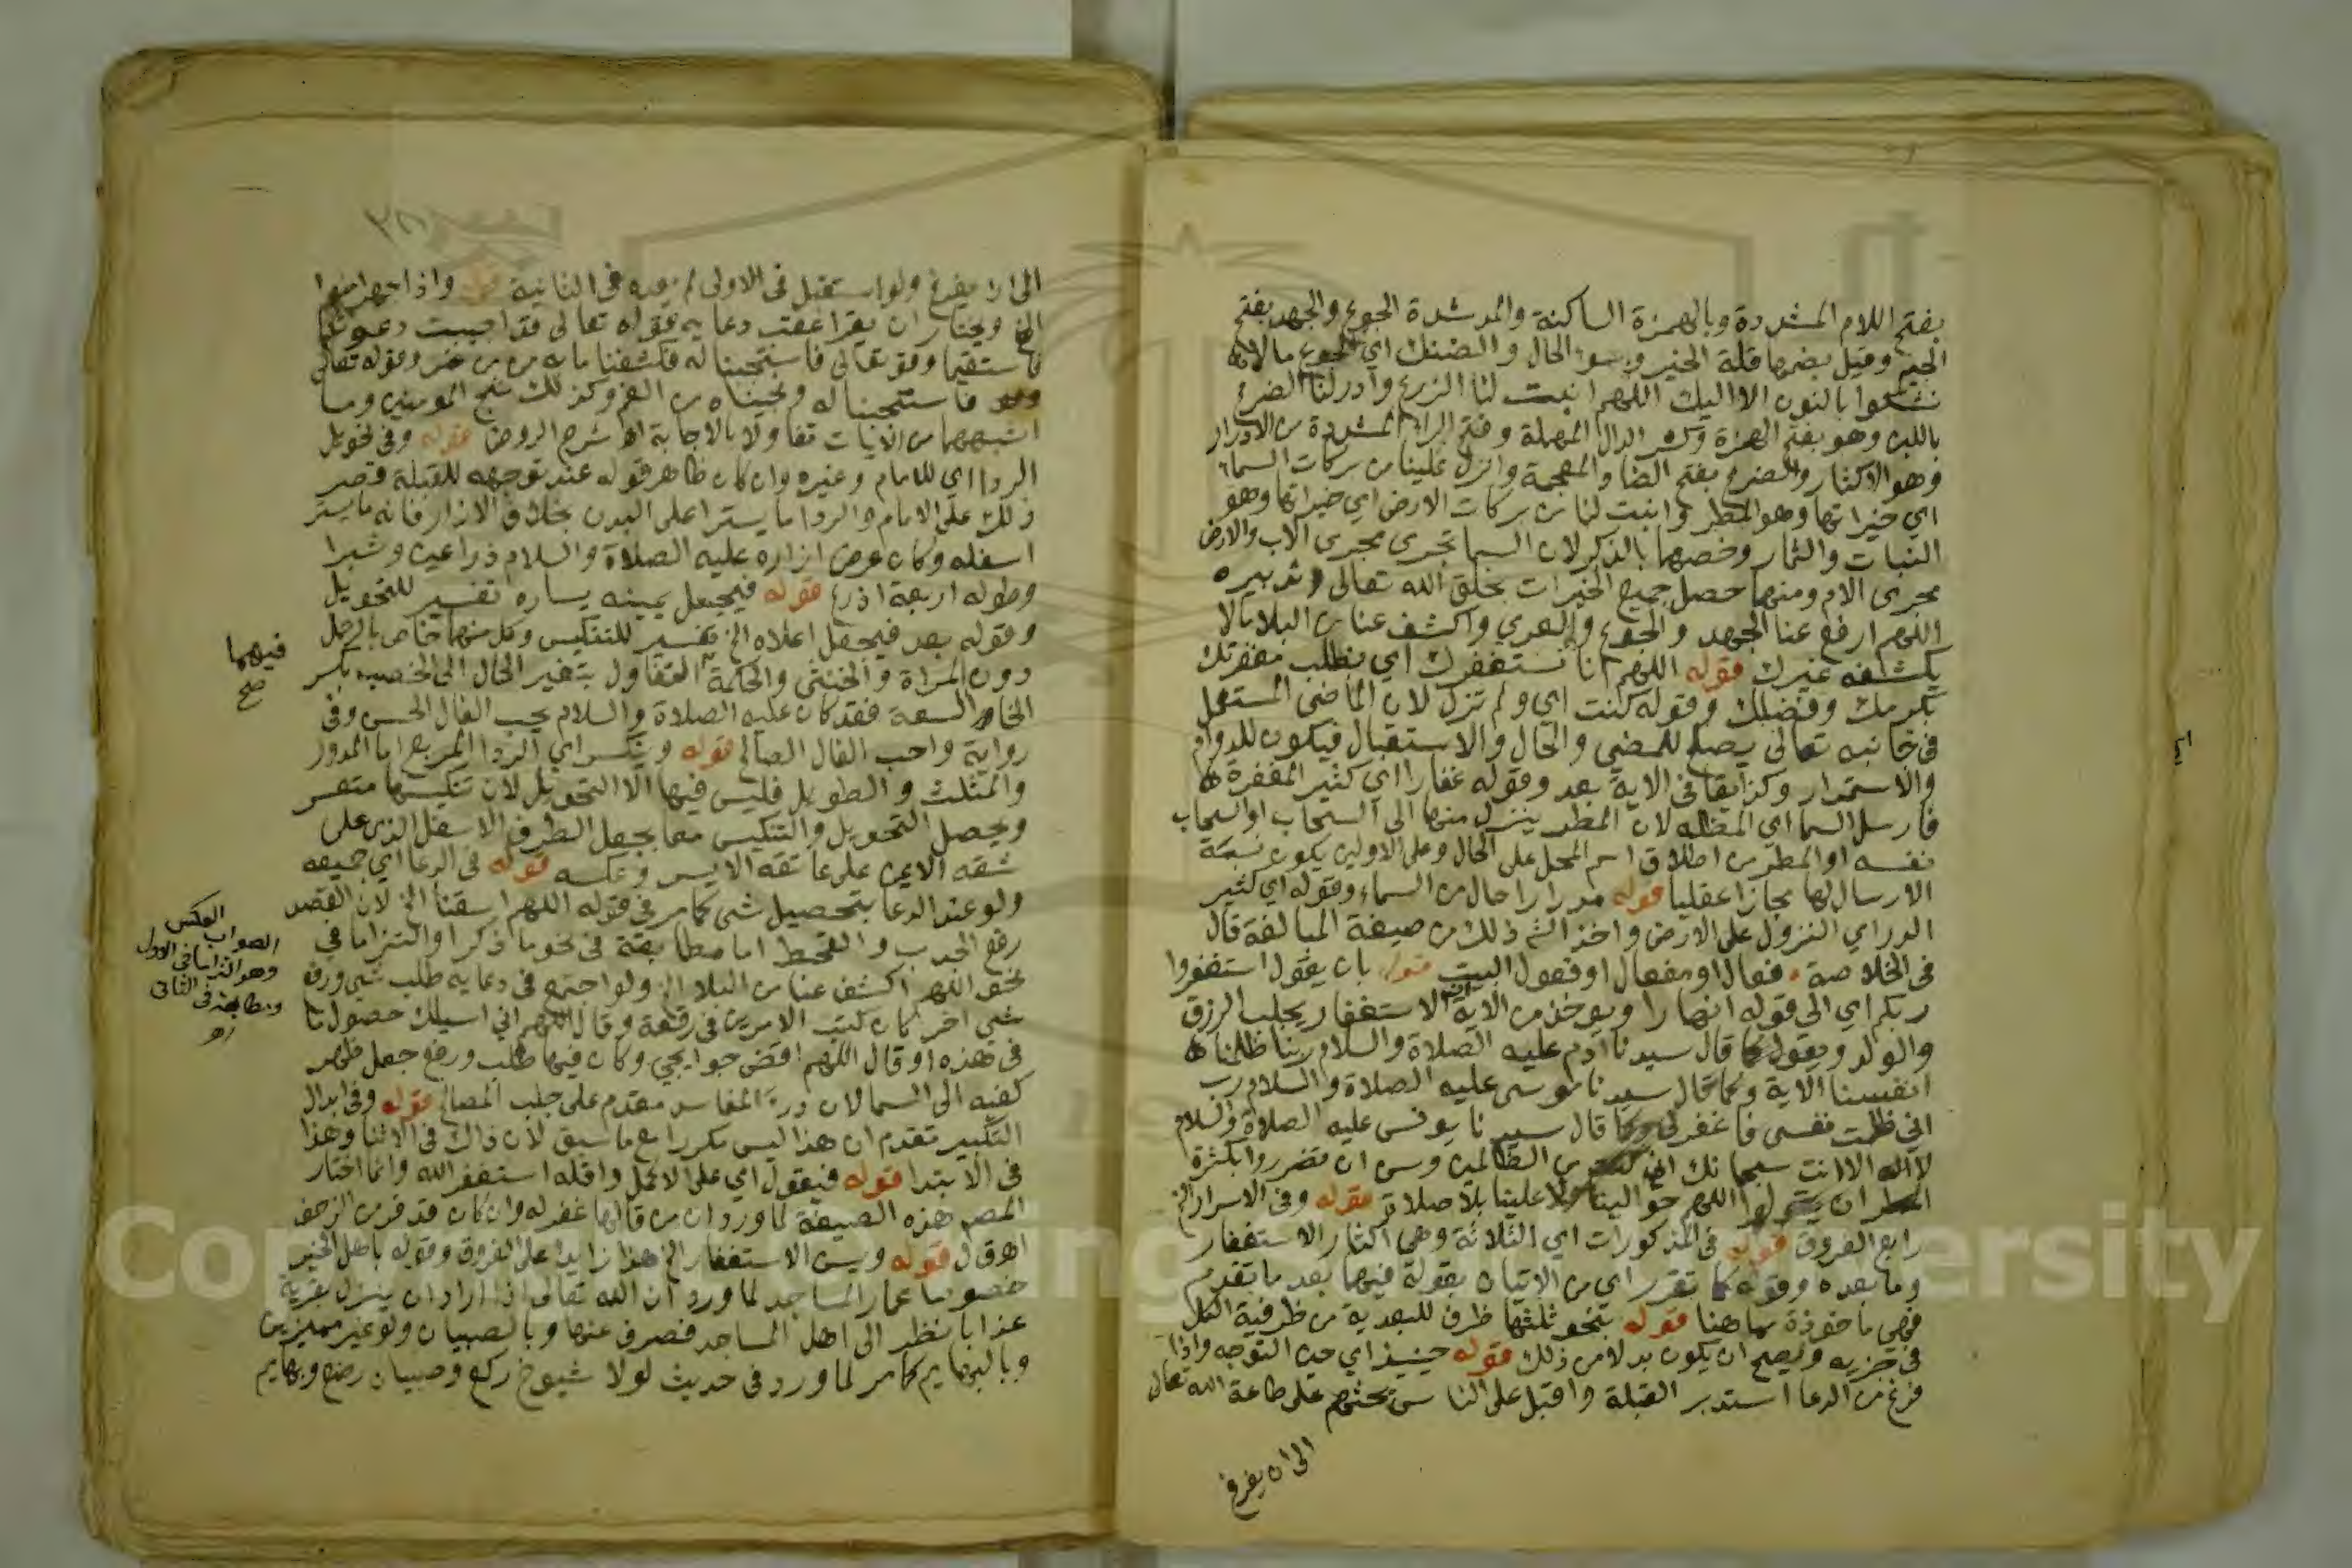 بفتح اللام المشددة وبالهمزة الساكنة والمد شدة الجوع والجهد بفتح
الجيم وقيل بضمها قلة الخير وسوء الحال والضنك اي الجوع ما لا
نشكوا بالنون الا اليك اللهم انبت لنا الزرع وادر لنا الضرع
باللبن وهو بفتح الهمزة وكسر الدال المهملة وفتح الراء المشددة من الادرار
وهو الاكثار والضرع بفتح الضاد المعجمة وانزل علينا من بركات السماء
اي خيراتها وهو المطر وانبت لنا من بركات الارض اي خيراتها وهو
النبات والثمار وخصهما بالذكر لان السما تجرى مجرى الاب والارض
مجرى الام ومنهما حصل جميع الخيرات بخلق الله تعالى وتدبيره
اللهم ارفع عنا الجهد والجوع والعري واكشف عنا من البلا ما لا
يكشفه غيرك قوله اللهم انا نستغفرك اي نطلب مغفرتك
بكرمك وفضلك وقوله كنت اي ولم تزل لان الماضى المستعمل
فى جانبه تعالى يصلح للمضي والحال والاستقبال فيكون للدوام
والاستمرار وكذا يقا فى الاية بعد وقوله غفارا اي كثير المغفرة
فارسل السما اي المظله لان المطر ينزل منها الى السحاب او السحاب
نفسه او المطر من اطلاق اسم المحل على الحال وعلى الاولين يكون نسبة
الارسال لها مجازا عقليا قوله مدرارا حال من السماء وقوله اي كثير
الدر اي النزول على الارض واخذ الش ذلك من صيغة المبالغة قال
فى الخلاصة فعال او مفعال او فعول البيت قوله بان يقول استغفروا
ربكم اي الى قوله انهارا ويوخذ من الاية ان الاستغفار يجلب الرزق
والولد ويقول كما قال سيدنا آدم عليه الصلاة والسلام ربنا ظلمنا
انفسنا الاية وكما قال سيدنا موسى عليه الصلاة والسلام رب
اني ظلمت نفسى فاغفر لى وكما قال سيدنا يونس عليه الصلاة والسلام
لا اله الا انت سبحانك اني كنت من الظالمين وسن ان تضرروا بكثرة
المطر ان يقولوا اللهم حوالينا ولا علينا بلا صلاة قوله وفى الاسرار الخ
رابع الفروق قوله فى المذكورات اي الثلاثة وهى اكثار الاستغفار
وما بعده وقوله كما تقرر اي من الاتيان بقوله فيهما بعد ما تقدم
فهي ماخوذة مما هنا قوله بنحو ثلثها ظرف للبعدية من ظرفية الكل
فى جزيه ويصح ان يكون بدلا من ذلك قوله حينيذ اي حين التوجه واذا
فرغ من الدعا استدبر القبلة واقبل على الناس يحثهم على طاعة الله تعال
الى ان يفرغ
الى ان يفرغ ولو استقبل فى الاولى لم يعده فى الثانية قوله واذا جهر امنوا
الخ ويختار ان يقرا عقب دعايه قوله تعالى قد اجيبت دعوتكما
فاستقيما وقو تعالى فاستجبنا له فكشفنا ما به من ضر وقوله تعالى
فاستجبنا له ونجيناه من الغم وكذلك ننجي المومنين وما
اشبههما من الايات تفاولا بالاجابة اه شرح الروض قوله وفى تحويل
الردا اي للامام وغيره وان كان ظاهر قوله عند توجهه للقبلة قصر
ذلك على الامام والردا ما يستر اعلى البدن بخلاف الازار فانه ما يستر
اسفله وكان عرض ازاره عليه الصلاة والسلام ذراعين وشبرا
وطوله اربعة اذرع قوله فيجعل يمينه يساره تفسير للتحويل
وقوله بعد فيجعل اعلاه الخ تفسير للتنكيس وكل منهما خاص بالرجل
دون المراة والخنثى والحكمة فيهما التفاول بتغير الحال الى الخصب بكسر
الخا والسعة فقد كان عليه الصلاة والسلام يحب الفال الحسن وفى
رواية واحب الفال الصالح قوله وينكس اي الردا المربع اما المدور
والمثلث والطويل فليس فيها الا التحويل لان تنكيسها متعسر
ويحصل التحويل والتنكيس معا بجعل الطرف الاسفل الذى على
شقه الايمن على عاتقه الايسر وعكسه قوله فى الدعا اي جميعه
ولو عند الدعا بتحصيل شى كما مر فى قوله اللهم اسقنا الخ لان القصد
رفع الجدب والقحط اما مطابقة فى نحو ما ذكر او التزاما في
نحو اللهم اكشف عنا من البلا الخ ولو اجتمع فى دعايه طلب شى ورفع
شى اخر كان كتب الامرين فى رقعة وقال اللهم اني اسيلك حصول ما
فى هذه او قال اللهم اقض حوايجي وكان فيها طلب ورفع جعل ظهر
كفيه الى السما لان درء المفاسد مقدم على جلب المصالح قوله وفى ابدال
التكبير تقدم ان هذا ليس مكررا مع ما سبق لان ذاك فى الاثنا وهذا
فى الابتدا قوله فيقول اي على الاكمل واقله استغفر الله وانما اختار
المص هذه الصيغة لما ورد ان من قالها غفر له وان كان قد فر من الزحف
اه ق ل قوله ويسن الاستغفار الخ هذا زايد على الفروق وقوله باهل الخير
خصوصا عمار المساجد لما ورد ان الله تعالى اذا اراد ان ينزل بقرية
عذابا نظر الى اهل المساجد فصرف عنها وبالصبيان ولو غير مميزين
وبالبهايم كما مر لما ورد فى حديث لولا شيوخ ركع وصبيان رضع وبهايم
فيهما
صح
الصواب العكس
وهو التزاما فى الاول
ومطابقة فى الثانى
اه